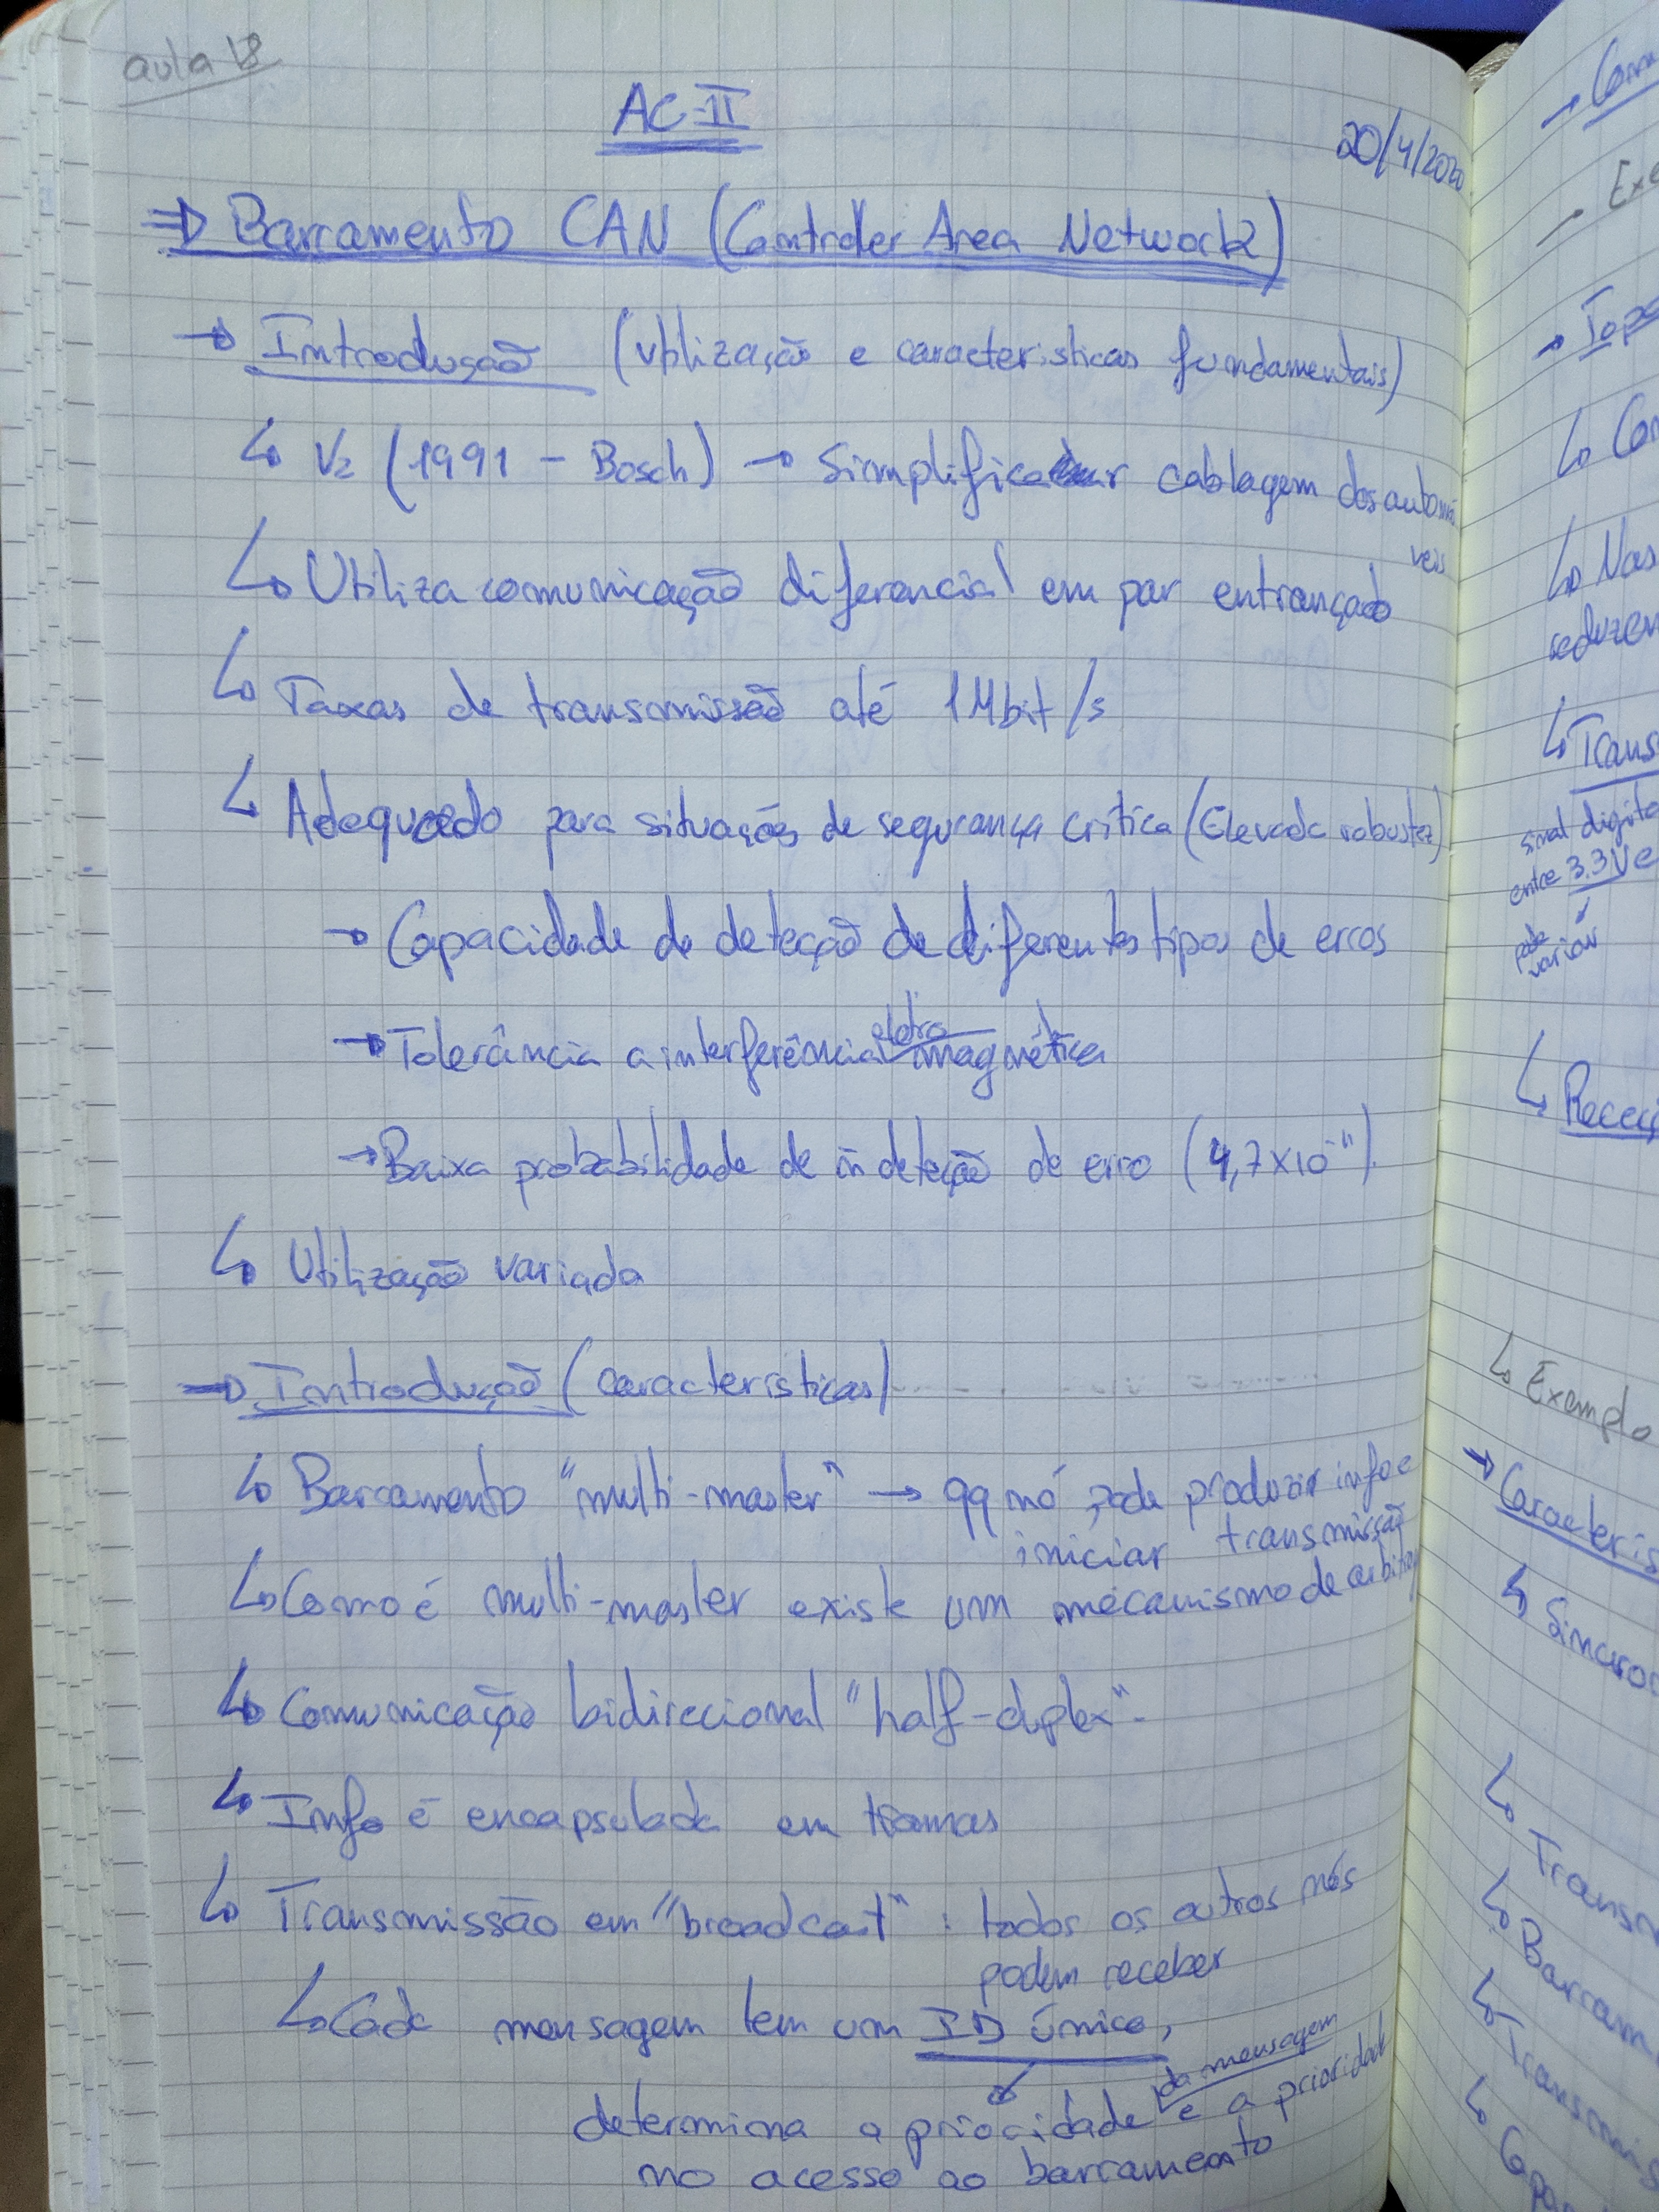 aula 18
AC-II
20/4/2020
⇒ Barramento CAN (Controler Area Network)
→ Introdução (Utilização e caracteristicas fundamentais)
↳ V2 (1991 - Bosch) → Simplificar cablagem dos automó
veis
↳ Utiliza comunicação diferencial em par entrançado
↳ Taxas de transmissão até 1Mbit/s
↳ Adequado para situações de segurança crítica (Elevada robustez)
→ Capacidade de deteção de diferentes tipos de erros
→ Tolerância a interferência eletromagnética
→ Baixa probabilidade de ñ deteção de erro (4,7x10⁻¹¹).
↳ Utilização variada
⇒ Introdução (características)
↳ Barramento "multi-master" → qq nó pode produzir info e
iniciar transmissão
↳ Como é multi-master existe um mecanismo de
↳ Comunicação bidirecional "half-duplex".
↳ Info é encapsulada em tramas
↳ Transmissão em "broadcast" : todos os outros nós
podem receber
↳ Cada mensagem tem um ID único,
determina a prioridade da mensagem e a prioridade
no acesso ao barramento
→
→
→
↳
↳ Nas
↳
sinal
entre 3.3V e
pode
variar
↳
↳ Exemplo
→
↳
↳
↳
↳
↳